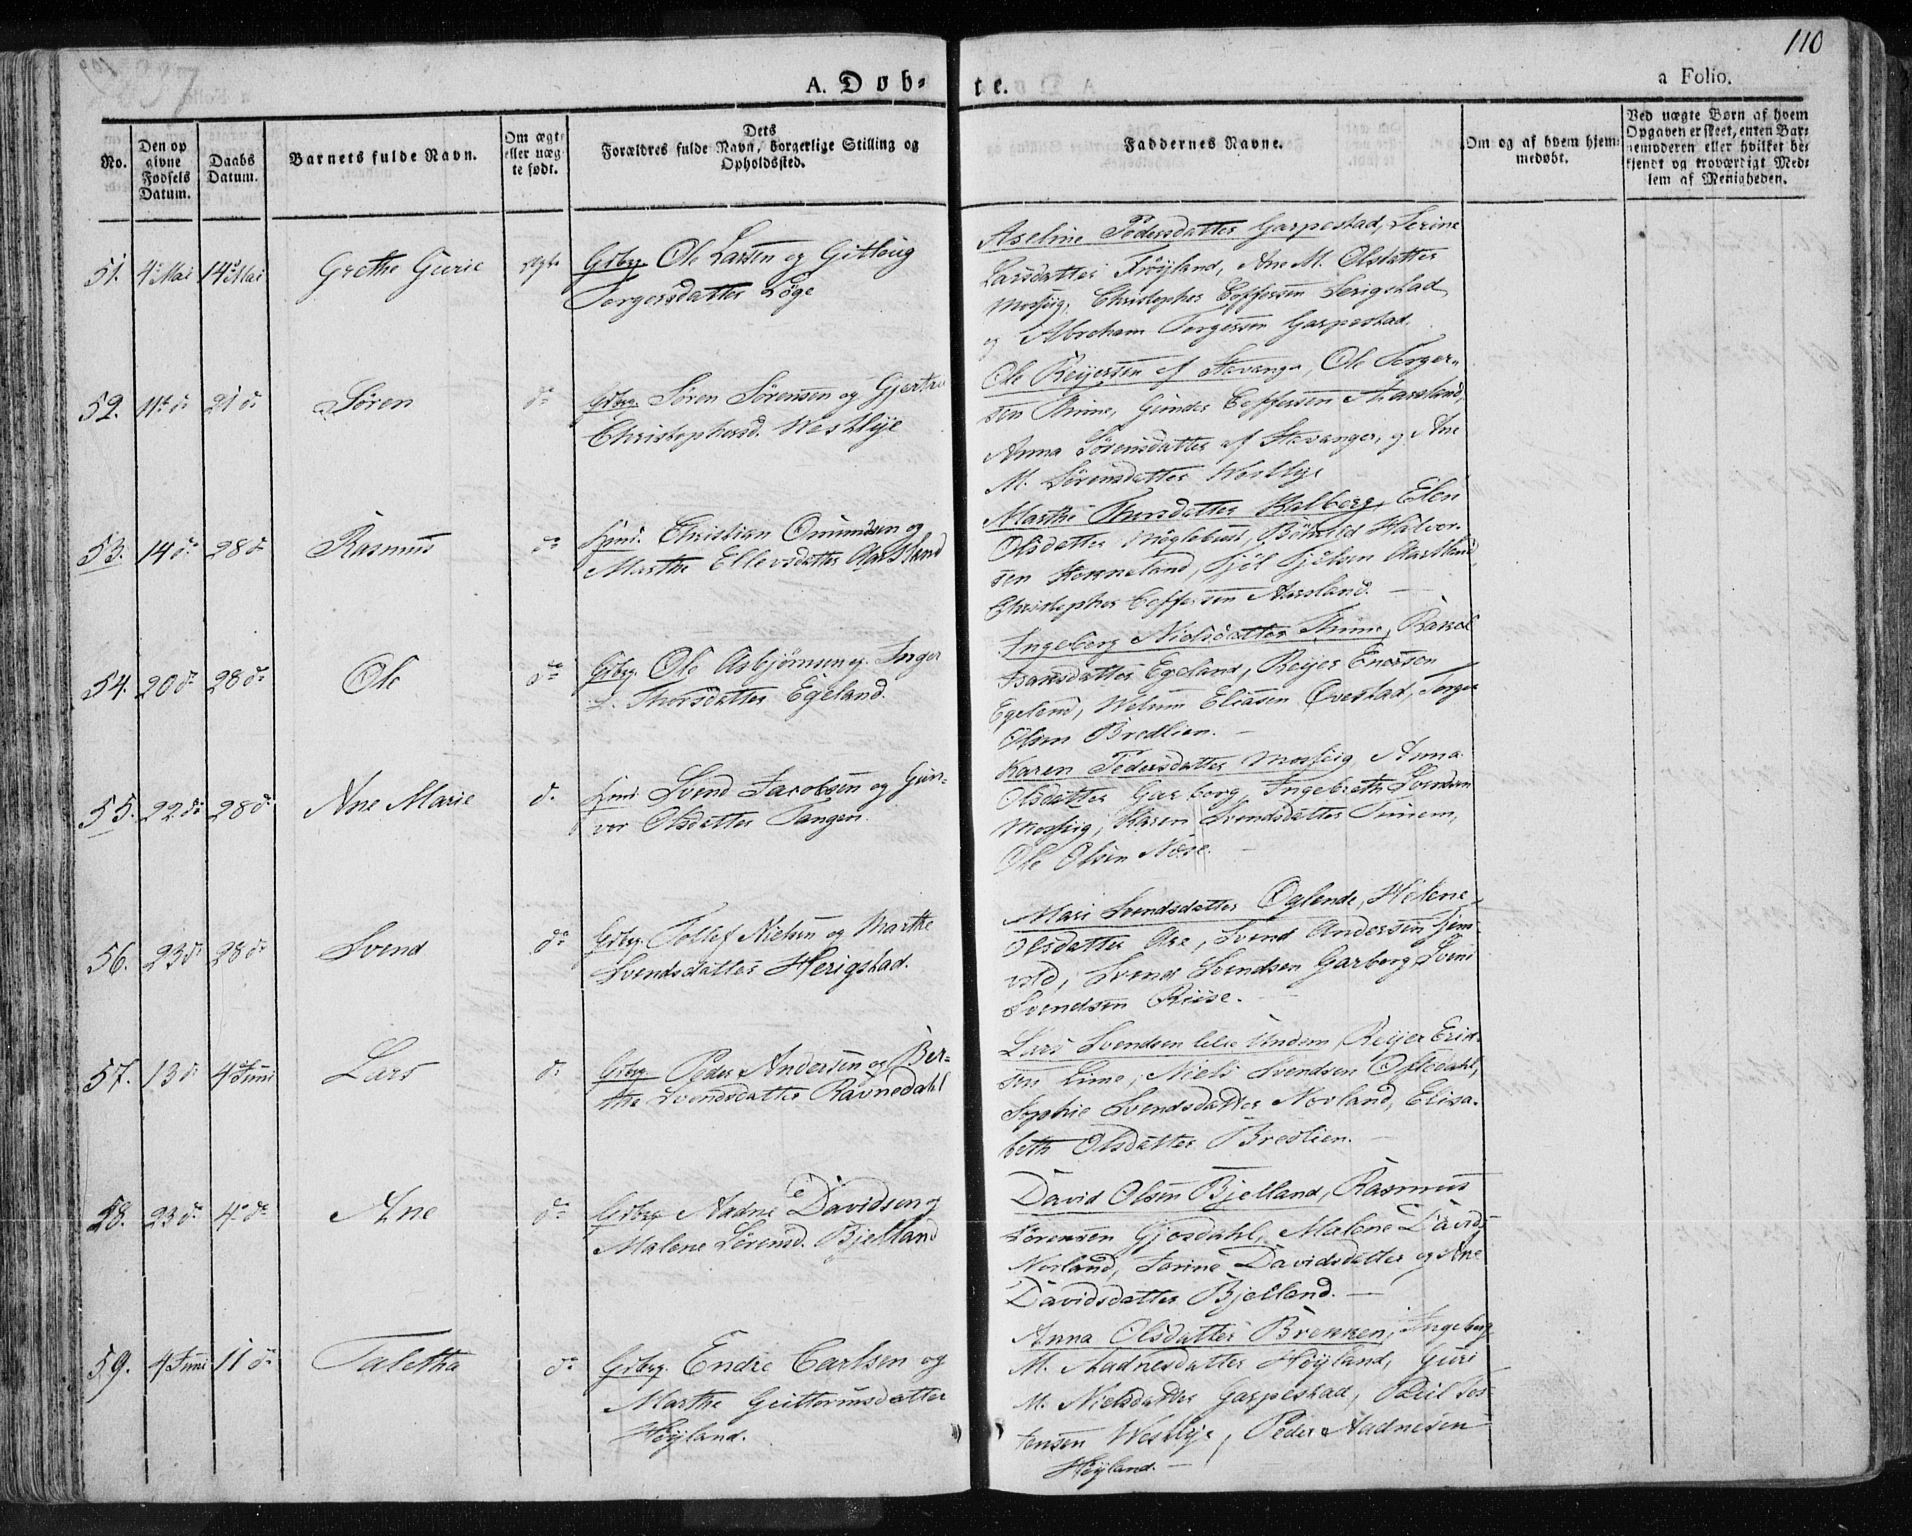 110
A. Døb- te.
a Folio.
No.
Den op
givne
Fødsels
Datum.
Daabs
Datum.
Barnets fulde Navn.
Om ægte
eller uæg
te født.
Dets
Forældres fulde Navn, borgerlige Stilling og
Opholdssted.
Faddernes Navne.
Om og af hvem hjem-
medøbt.
Ved uægte Børn af hvem
Opgaven er skeet, enten Bar-
nemoderen eller hvilket be-
kjendt og troværdigt Med-
lem af Menigheden.
51. 4 Mai 14 Mai Grethe Gurie ægte Gbrg. Ole Larsen og Gitlaug
Torgersdatter Løge
Aseline Pedersdatter Garpestad, Serine
Larsdatter Frøyland, Ane M. Olsdatter
Mossig, Christopher Toffersen Serigstad
og Abraham Torgersen Garpestad.
52. 11 d. 21 d. Søren do Gbrg. Søren Sørensen og Gjertru
Christophersd. Westlye
Ole Reijersen af Stavanger, Ole Torger-
sen Thime, Gunder Toffersen Aarsland,
Anna Sørensdatter af Stavanger, og Ane
M. Sørensdatter Westlye
53. 14 do 28 d. Rasmus do Hmd. Christian Omundsen og
Marthe Ellevsdatter Aarsland
Marthe Thorsdatter Kalberg, Elen
Olsdatter Njøglebust, Halvor-
sen Hogneland, Aarsland,
Christopher Toffersen Aarsland. —
54. 20 d. 28 do Ole do Gbrg. Ole Asbjørnsen og Inger
S. Thorsdatter Egeland.
Ingeborg Nielsdatter Thime, Rakel
Hansdatter Egeland, Reijer Enersen
Egeland, Welum Eliasen Qvestad, Torger
Olsen Bredlien. —
55. 22 do 28 d. Ane Marie d. Hmd. Svend Jacobsen og Gun-
vor Olsdatter Tangen.
Karen Pedersdatter Mossig Anna
Olsdatter Garborg, Ingebreth Svendsen
Mossig, Karen Svendsdatter Tunem,
Ole Olsen Nose. —
56. 23 d. 28 d. Svend do Gbrg. Tollef Nielsen og Marthe
Svendsdatter Herigstad.
Mari Svendsdatter Oglende, Helene
Olsdatter Are, Svend Andersen Hem-
vold, Svend Svendsen Garborg, Svend
Svendsen Riise. —
57. 13 d. 4 Juni Lars d. Gbrg. Peder Andersen og Ber-
the Svendsdatter Ravnedahl
Lars Svendsen lille Undem, Reijer Erik-
sen Lime, Niels Svendsen Oftedahl,
Sophie Svendsdatter Novland, Elisa-
beth Olsdatter Bredlien. —
58. 23 d. 4 do Ane do Gbrg. Aadne Davidsen og
Malene Sørensd. Bjelland
David Olsen Bjelland, Rasmus
Sørensen Gjosdahl, Malene Davids
Norland, Sorine Davidsdatter og Ane
Davidsdatter Bjelland. —
59. 4 Juni 11 d. Taletha do Gbrg. Endre Carlsen og
Marthe Geittormsdatter
Høyland.
Anna Olsdatter Brekken, Ingeborg
M. Aadnesdatter Høyland, Guri
M. Nielsdatter Garpestad, Poul Tos-
tensen Westlye, Peder Aadnesen
Høyland. —